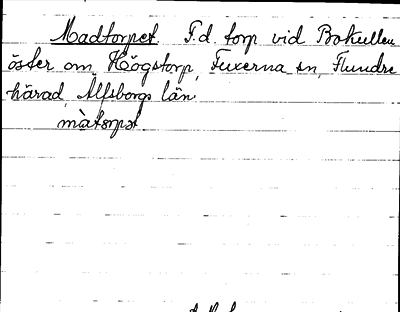 Madtorpet F.d. torp vid Bokullen
öster om Högstorp, Fuxerna sn, Flundre
härad, Älfsborgs län.
màtorpst